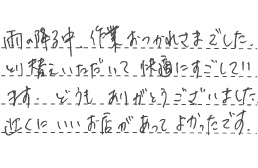 雨の降る中、作業おつかれさまでした。
とり替えいただいて快適にすごしてい
ます。どうもありがとうございました
近くにいいお店があってよかったです。